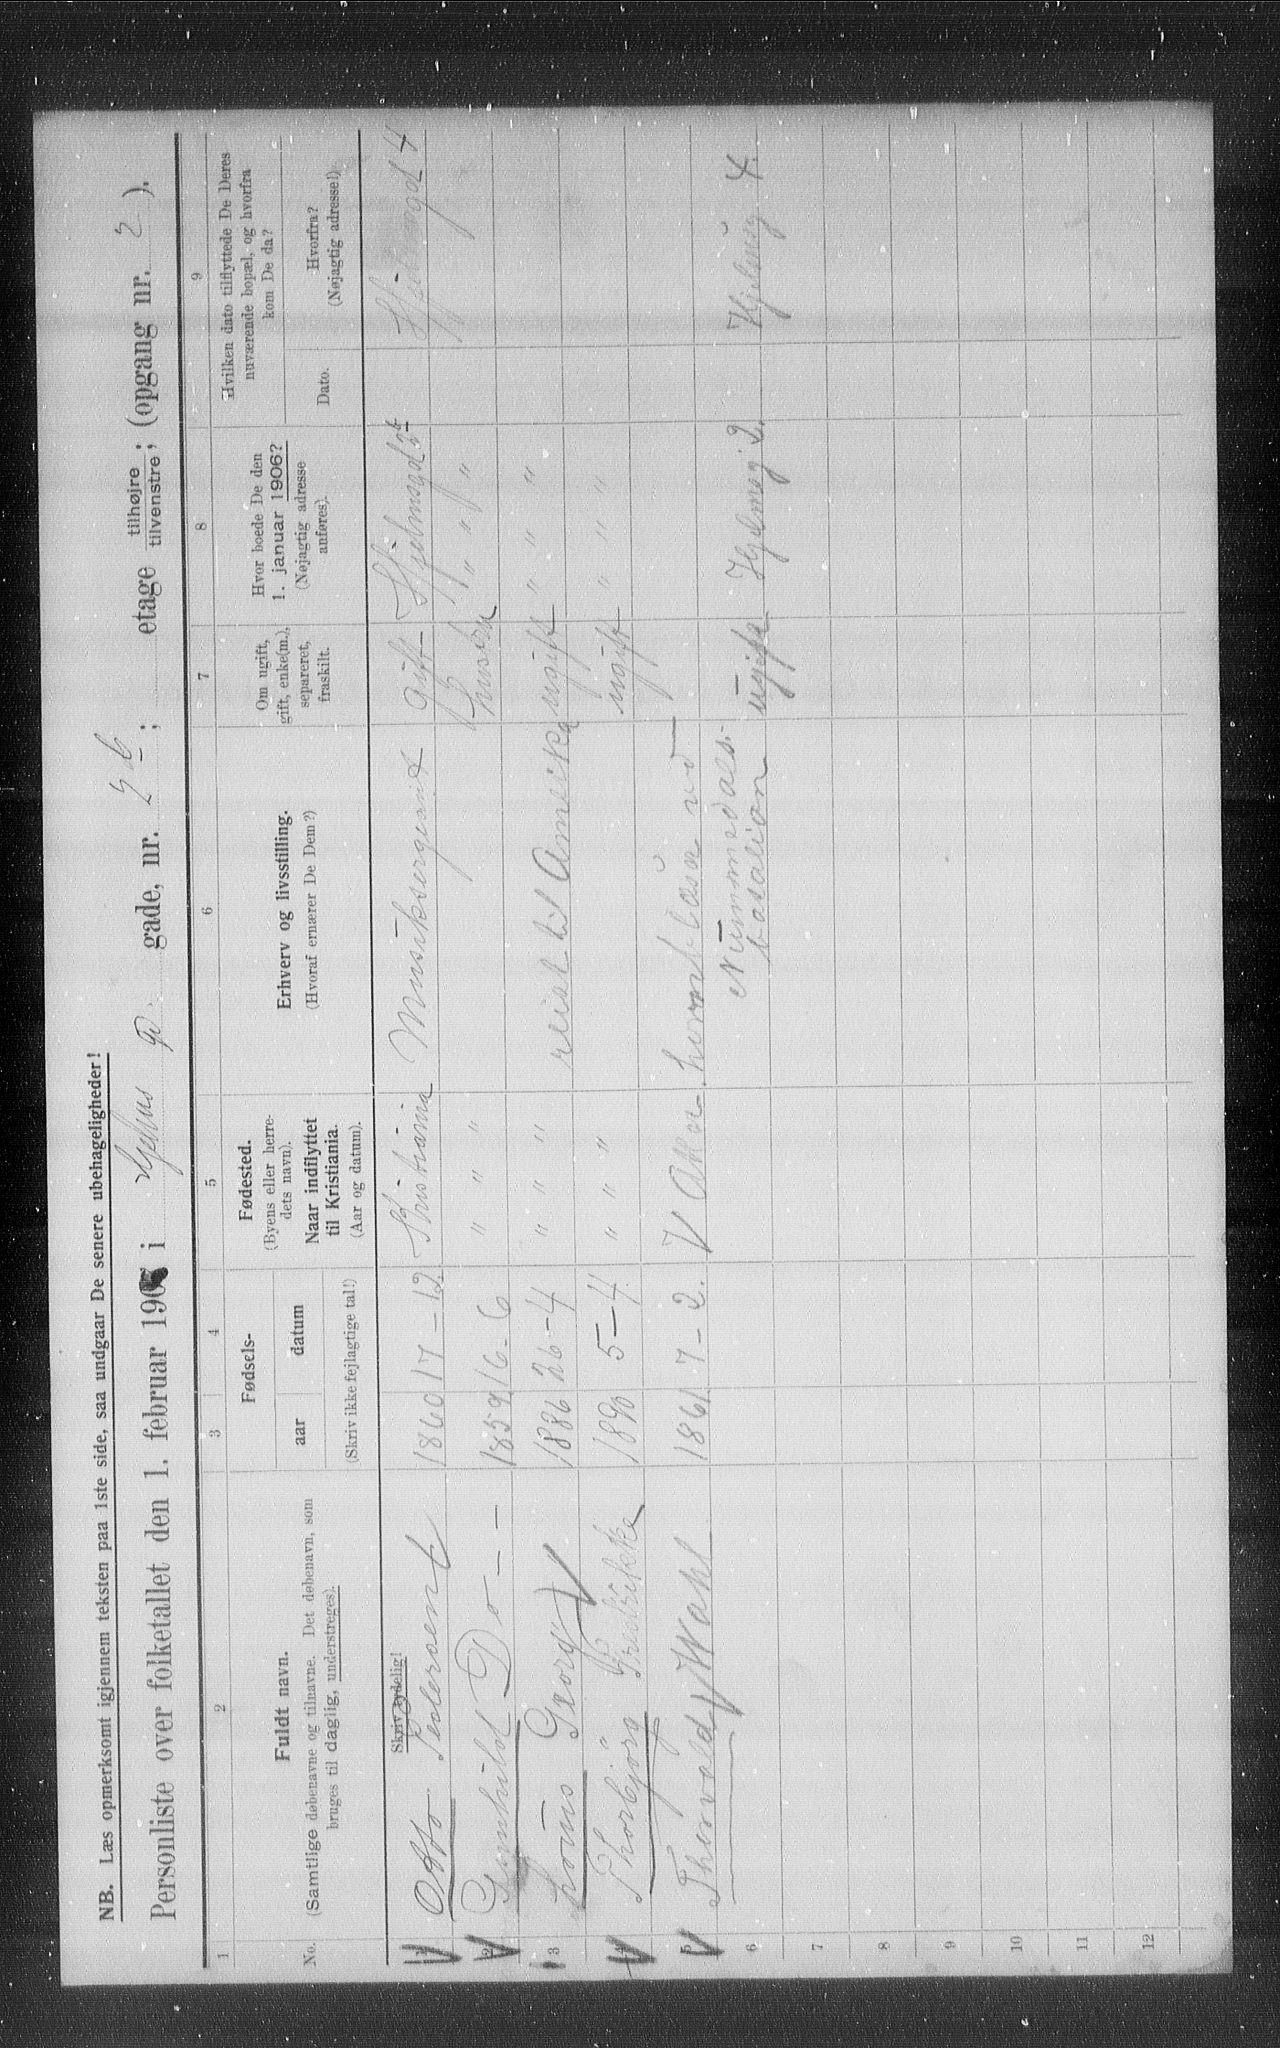 NB. Læs opmerksomt igjennem teksten paa 1ste side, saa undgaar De senere ubehageligheder!
Personliste over folketallet den 1. februar 190 i Hjelms gd. gade, nr. 2 b; etage tilhøjre tilvenstre; (opgang nr. 2).
1 2 3 4 5 6 7 8 9
No.
Fuldt navn.
(Samtlige døbenavne og tilnavne. Det døbenavn, som
bruges til daglig, understreges).
Fødsels-
aar datum
(Skriv ikke fejlagtige tal!)
Fødested.
(Byens eller herre-
dets navn).
Naar indflyttet
til Kristiania.
(Aar og datum).
Erhverv og livsstilling.
(Hvoraf ernærer De Dem?)
Om ugift,
gift, enke(m.),
separeret,
fraskilt.
Hvor boede De den
1. januar 1906?
(Nøjagtig adresse
anføres).
Hvilken dato tilflyttede De Deres
nuværende bopæl, og hvorfra
kom De da?
Dato.
Hvorfra?
(Nøjagtig adresse!)
Skriv tydelig!
1 Otto Pedersen 1860 17-12 Kristiania Musiksergeant gift Hjelmsgd 2b Hjelmsgd 4
2 Gunhild Do - - 1859 16-6 " " " hustru " " "
3 Georg 1886 26-4 " " " reist til Amerika ugift " " "
4 Thorbjörg Fredrikke 1890 5-4 " " " ugift " " "
5 Thorvald Wahl 1861 7-2. Aker hornblåser ved
6 Nummedals. ugift Hjelmsg. 2. Hjelmsg 4.
batalion
7
8
9
10
11
12